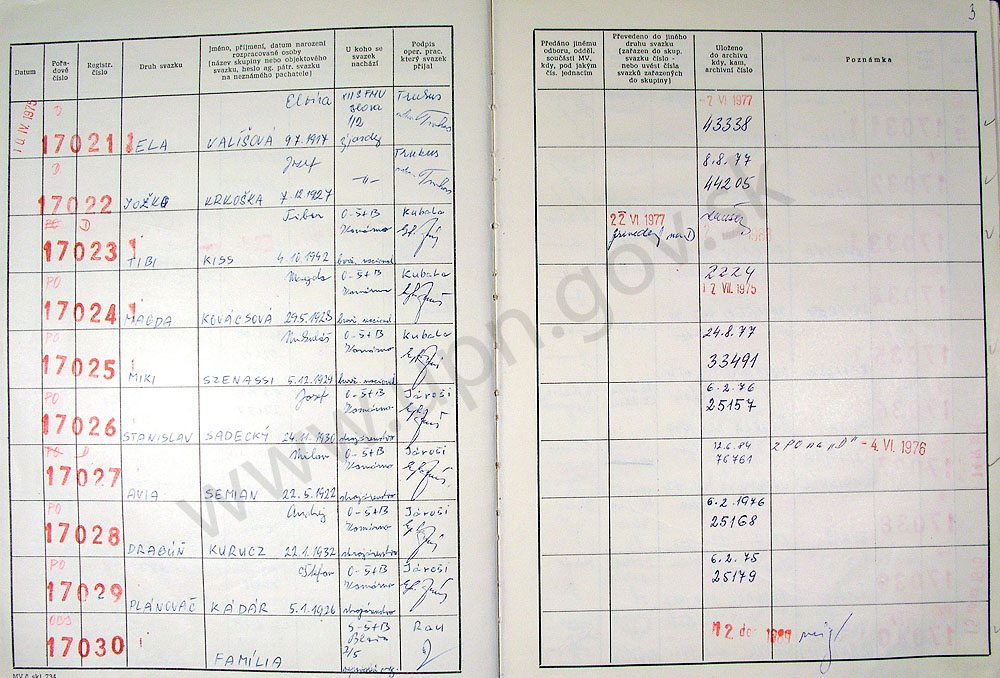 3
Datum
Pořa-
dové
číslo
Registr.
číslo
Druh svazku
Jméno, příjmení, datum narození
rozpracované osoby
(název skupiny nebo objektového
svazku, heslo ag. pátr. svazku
na neznámého pachatele)
U koho se
svazek
nachází
Podpis
oper. prac.
který svazek
přijal
Předáno jinému
odboru, odděl.
součásti MV,
kdy, pod jakým
čís. jednacím
Převedeno do jiného
druhu svazku
(zařazen do skup.
svazku číslo -
nebo uvést čísla
svazků zařazených
do skupiny)
Uloženo
do archivu
kdy, kam,
archivní číslo
Poznámka
D
Elvíra
Trukus
17021 ELA VALÍŠOVÁ 9.7.1917
-7. VI. 1977
43338
D
Jozef
Trukus
17022 JOŽKO KRKOŠKA 7.12.1927 -"-
8.8.77
44205
PO D
Tibor O-ŠtB Kubala
Komárno
17023 TIBI KISS 4.10.1942
22. VI. 1977
PO
Magda O-ŠtB Kubala
Komárno
17024 MAGDA KOVÁCSOVÁ 29.5.1928
2224
12. VII. 1975
PO
Mikuláš O-ŠtB Kubala
Komárno
17025 MIKI SZENASSI 5.12.1924
24.8.77
33491
PO
Jozef O-ŠtB Jároši
Komárno
17026 STANISLAV SADECKÝ 24.11.1930
6.2.76
25157
PO D
Milan O-ŠtB Jároši
Komárno
17027 AVIA SEMIAN 22.5.1922
12.6.84
76761
z PO na "D" - 4. VI. 1976
PO
Andrej O-ŠtB Jároši
Komárno
17028 DRABÚŇ KURUCZ 22.1.1932
6.2.1976
25168
PO
Štefan O-ŠtB Jároši
Komárno
17029 PLÁNOVAČ KÁDÁR 5.1.1926
6.2.75
25179
OBJ
S-ŠtB Rau
17030 FAMÍLIA
12. dec 1989
www.upn.gov.sk